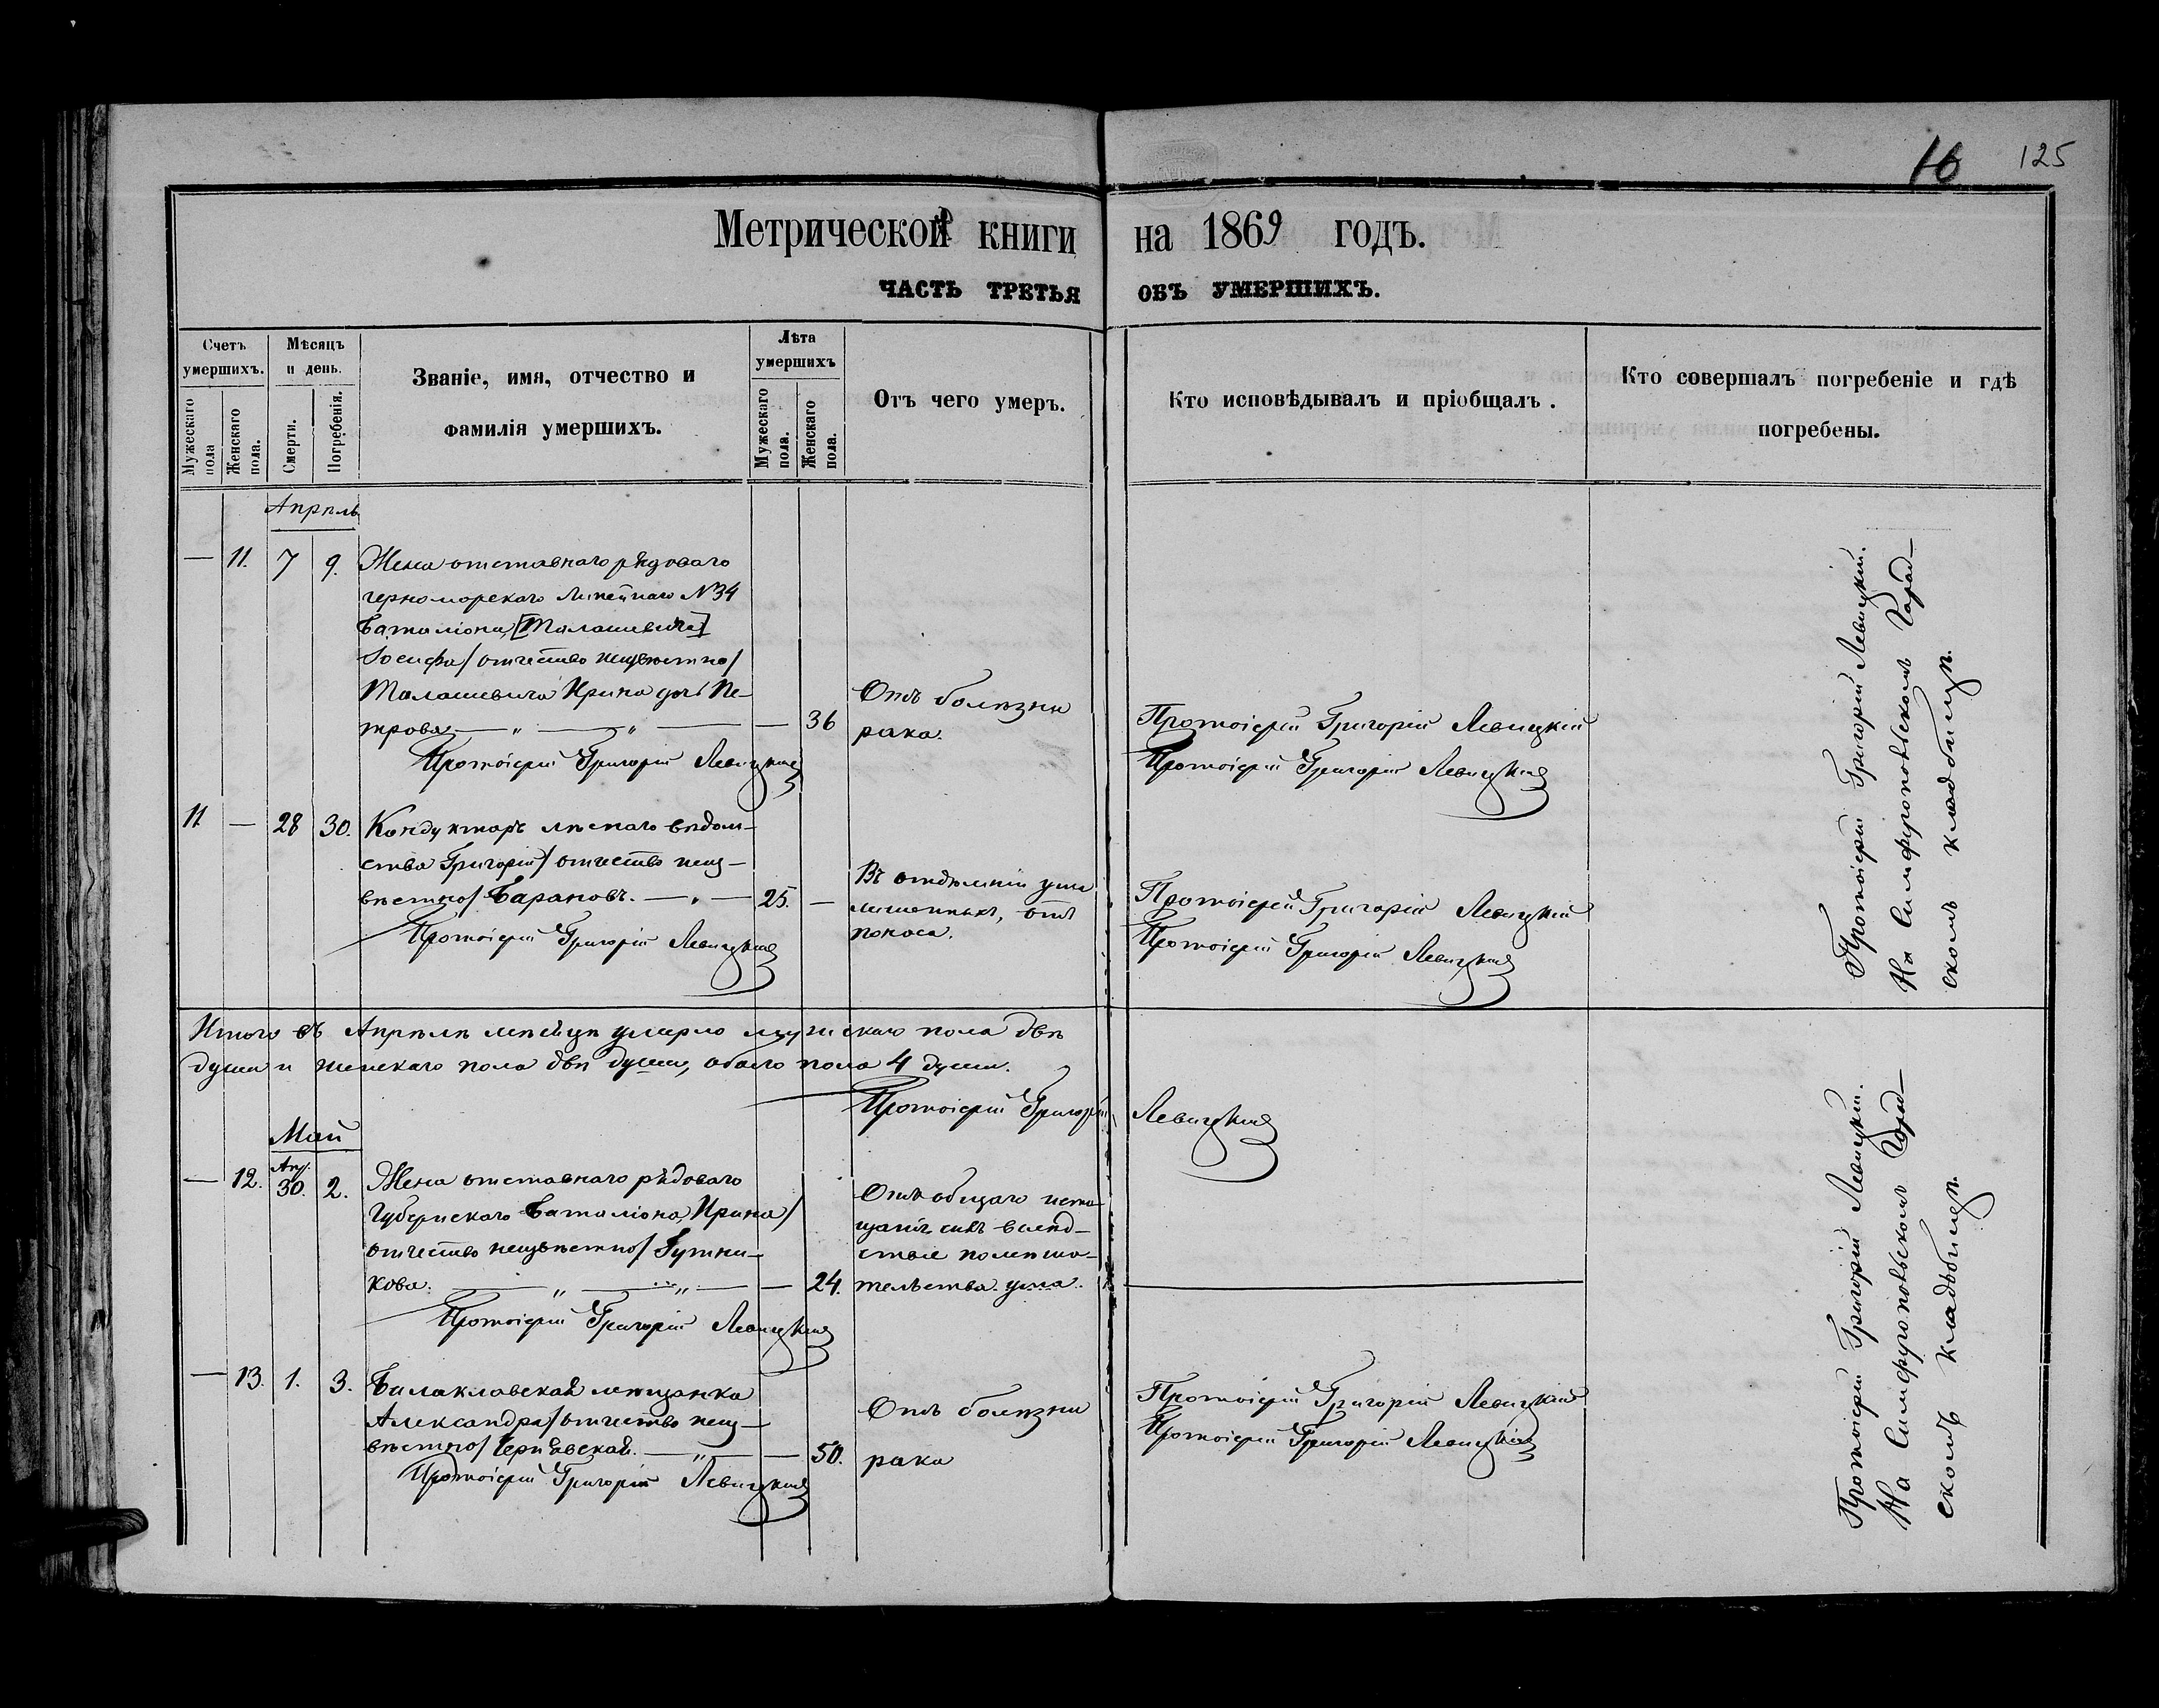 16 125
Метрической книги на 1869 годъ.
ЧАСТЬ ТРЕТЬЯ ОБЪ УМЕРШИХЪ.
Счетъ умершихъ.
Мужескаго пола
Женскаго пола.
Мѣсяцъ и день.
Смерти.
Погребенія.
Званіе, имя, отчество и
фамилія умершихъ.
Лѣта умершихъ
Мужескаго пола.
Женскаго пола.
Отъ чего умеръ.
Кто исповѣдывалъ и пріобщалъ.
Кто совершалъ погребеніе и гдѣ
погребены.
Апрѣль
— 11. 7 9. Жена отставнаго рядоваго
черноморскаго Линейнаго №34
Баталіона, [Малашевича]
Іосифа/ отчество неизвѣстно/
Малашевича Ирина дочь Пе-
трова — „ — „ — — 36
Отъ болѣзни
рака.
Протоіерей Григорій Левицкій
Протоіерей Григорій Левицкій
Протоіерей Григорій Левицкій
11 — 28 30. Кондукторъ лѣснаго вѣдом-
ства Григорій/ отчество неиз-
вѣстно/ Барановъ. — „ — 25. —
Въ отдѣленіи ума
лишенныхъ, отъ
поноса.
Протоіерей Григорій Левицкій
Протоіерей Григорій Левицкій
Протоіерей Григорій Левицкій
Протоіерей Григорій Левицкій.
На Симферопольскомъ Город-
скомъ кладбищѣ.
Итого въ Апрѣлѣ мѣсяцѣ умерло мужескаго пола двѣ
души и женскаго пола двѣ души, обоего пола 4 души.
Протоіерей Григорій Левицкій
Май
— 12. Апр. 30. 2. Жена отставнаго рядоваго
Губернскаго Баталіона, Ирина/
отчество неизвѣстно/
кова. — „ — „ — — 24.
Отъ общаго исто
щанія силъ вслѣд-
ствіе помѣша-
тельства ума.
Протоіерей Григорій Левицкій
— 13. 1. 3. Балаклавская мѣщанка
Александра/ отчество неиз-
вѣстно/ Чернявская. — „ — — 50.
Отъ болѣзни
рака
Протоіерей Григорій Левицкій
Протоіерей Григорій Левицкій
Протоіерей Григорій Левицкій
Протоіерей Григорій Левицкій.
На Симферопольскомъ Город-
скомъ кладбищѣ.